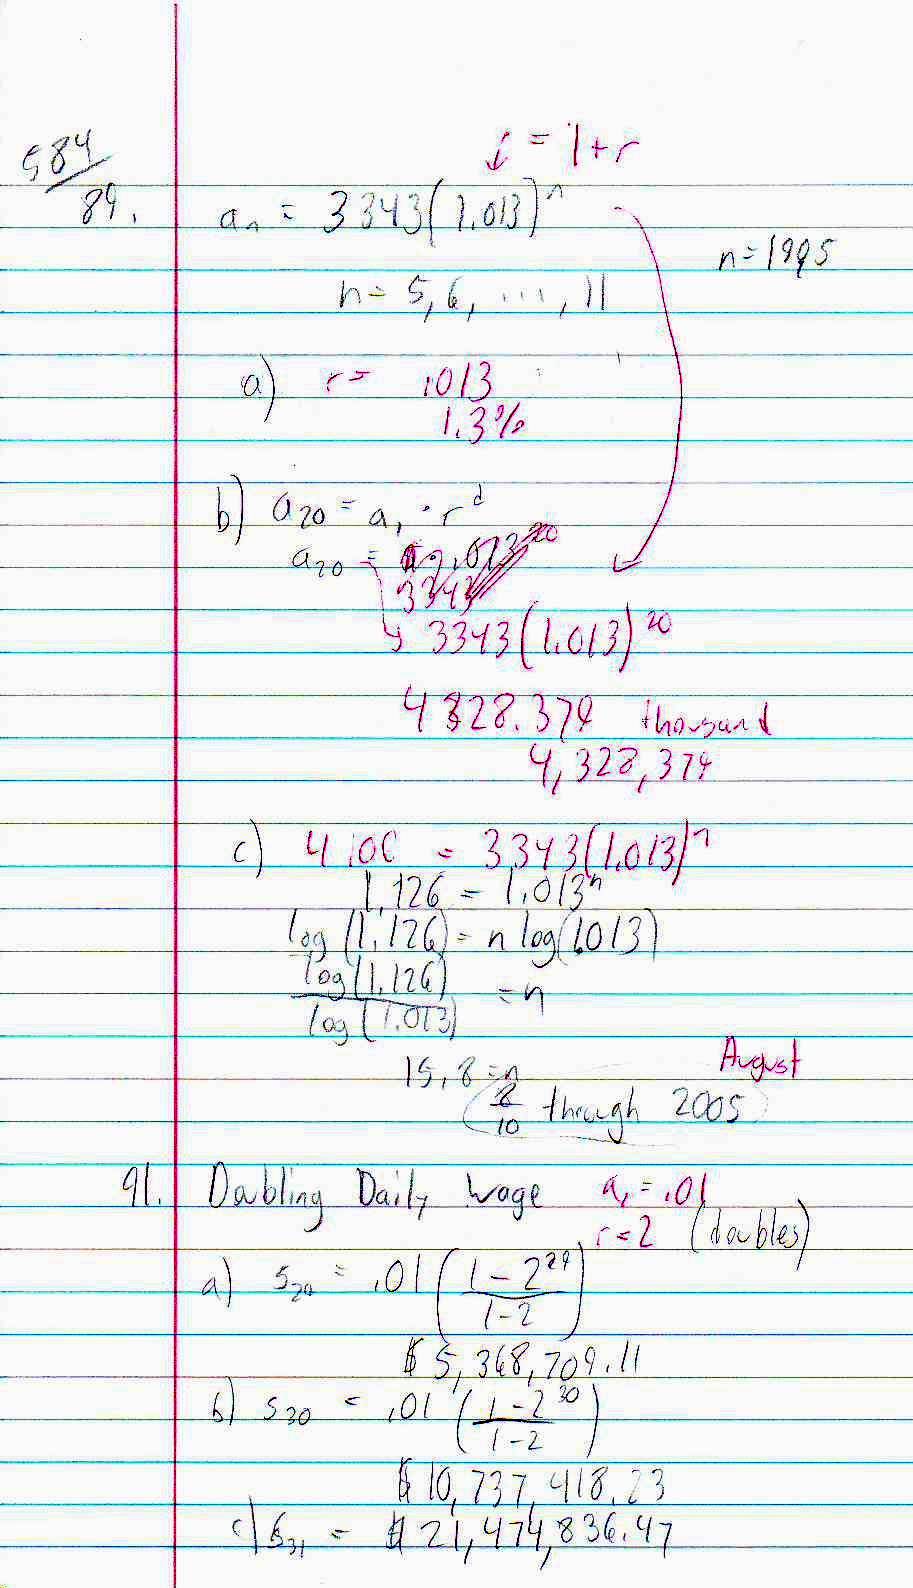 584
89.
↓ = 1+r
aₙ = 3343(1.013)ⁿ
n=1995
n= 5,6, ..., 11
a) r= .013
1.3%
b) a₂₀ = a₁ · r^d
a₂₀ =
3343
3343(1.013)²⁰
4328.374 thousand
4,328,374
c) 4100 = 3343(1.013)ⁿ
1.126 = 1.013ⁿ
log(1.126) = n log(1.013)
log(1.126)
log(1.013) = n
15.8 = n
August
8/10 through 2005
91. Doubling Daily Wage a₁=.01
r=2 (doubles)
a) s₂₉ = .01 (1-2²⁹ / 1-2)
$5,368,709.11
b) s₃₀ = .01 (1-2³⁰ / 1-2)
$10,737,418.23
c) s₃₁ = $21,474,836.47